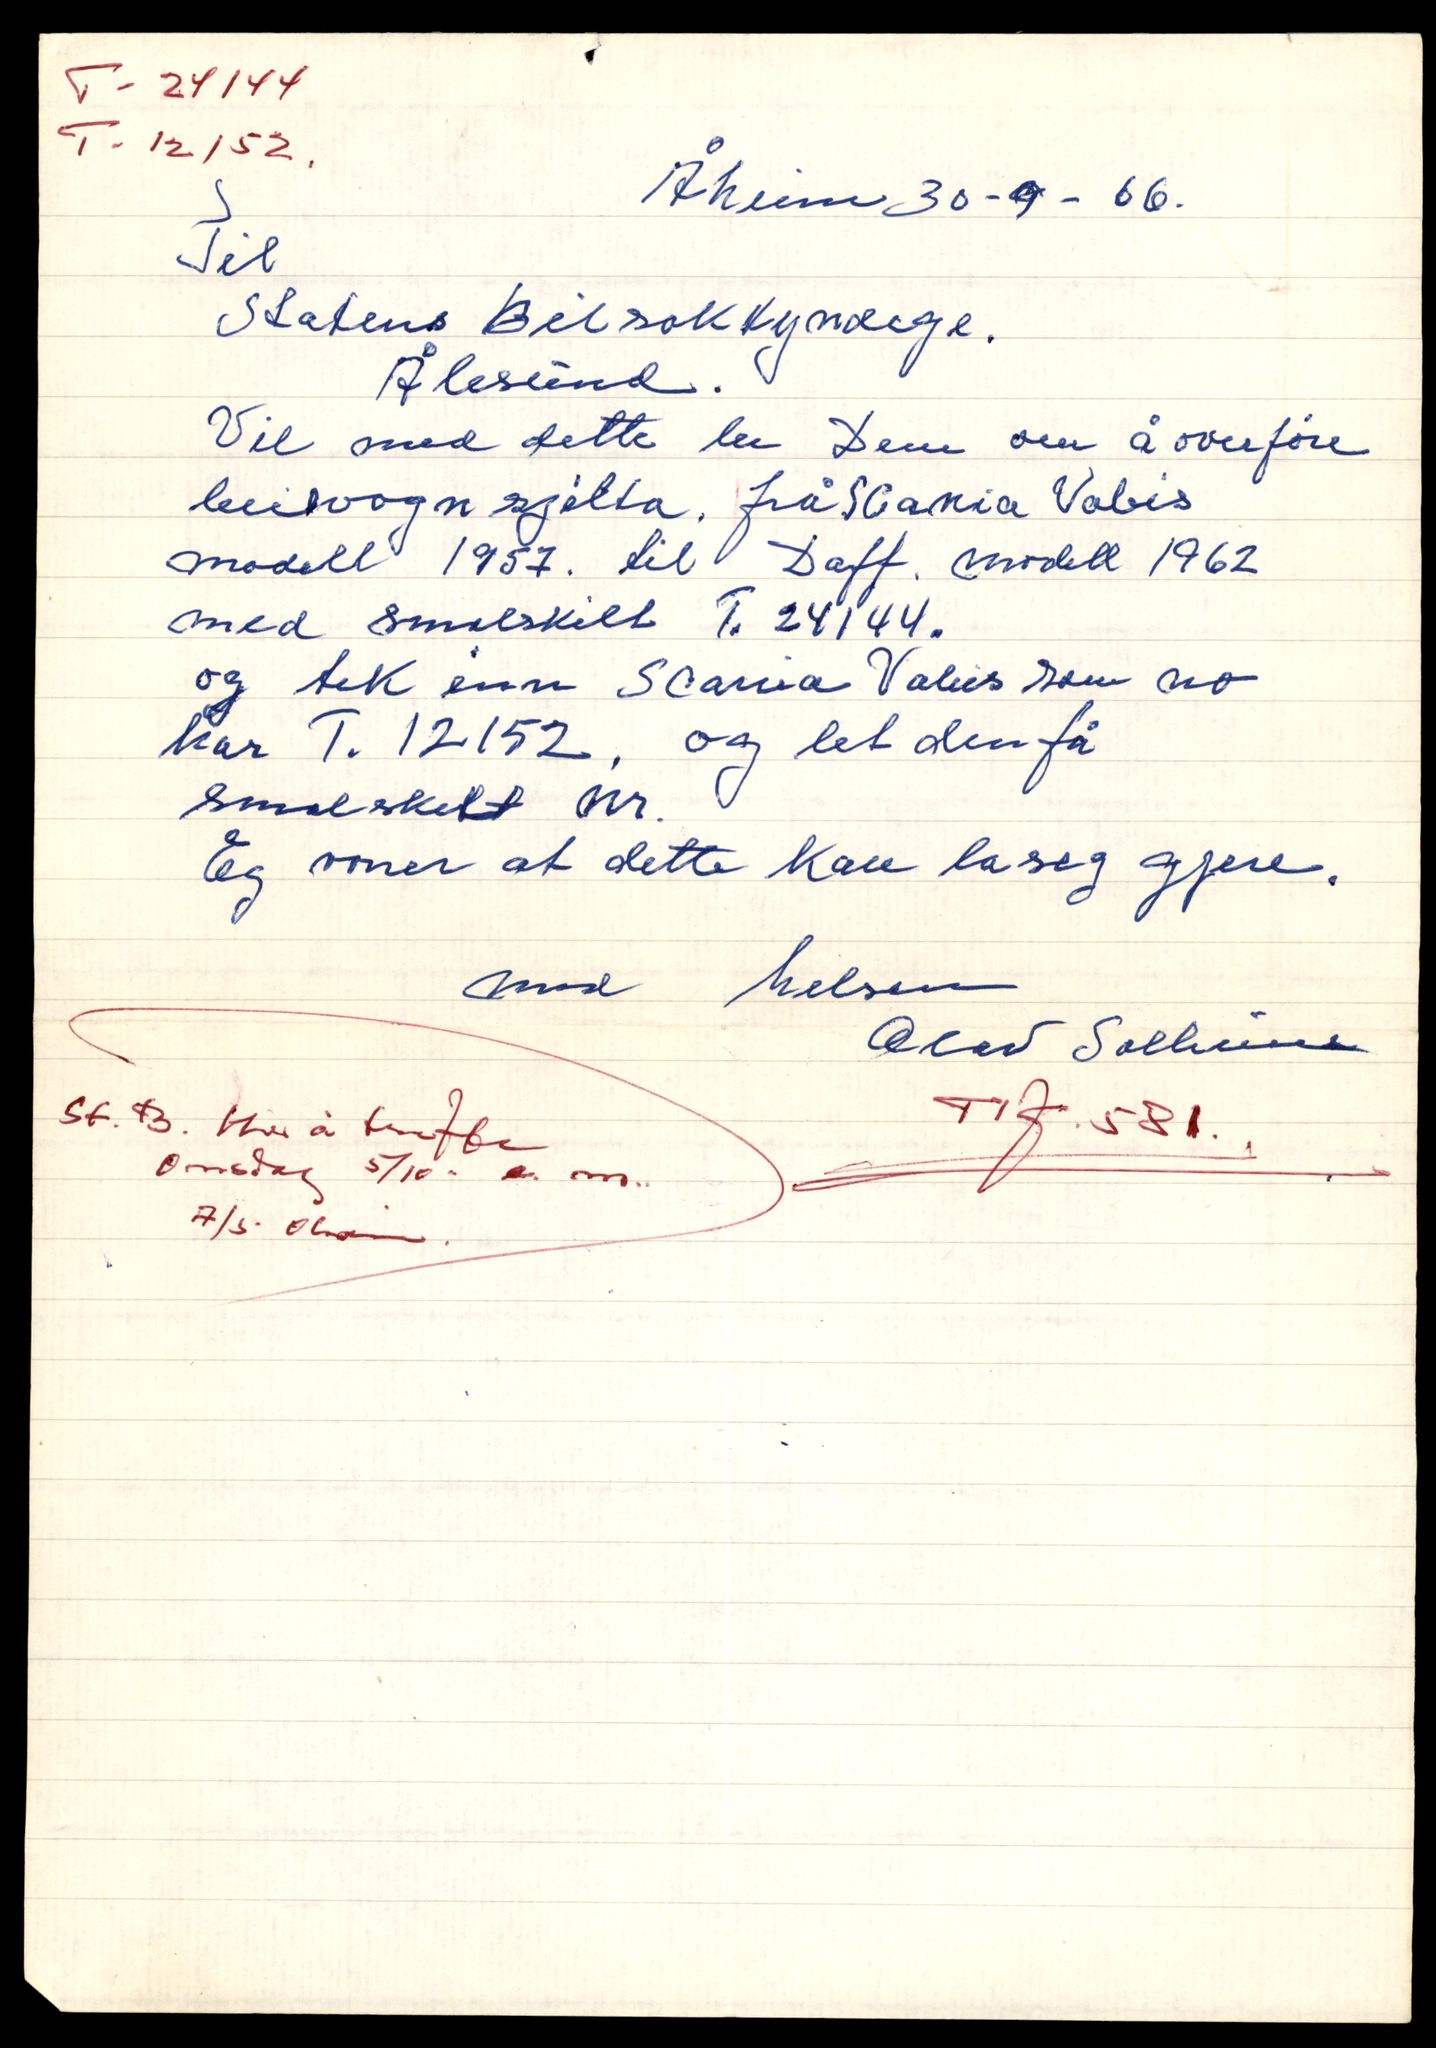 T- 24144
T- 12152.
Åheim 30-9-66.
Til
Statens Bilsakkyndige.
Ålesund.
Vil med dette be Dem om å overføre
leievogn sjilta. frå Scania Vabis
modell 1957. til Daff. modell 1962
med smalskilt T. 24144.
og tek inn Scania Vabis som no
har T. 12152, og let den få
smalskilt Nr.
Eg voner at dette kan la seg gjere.
med helsen
Olav Solheim
Tlf. 581.
St. B. å treffe
Onsdag 5/10- e. m.